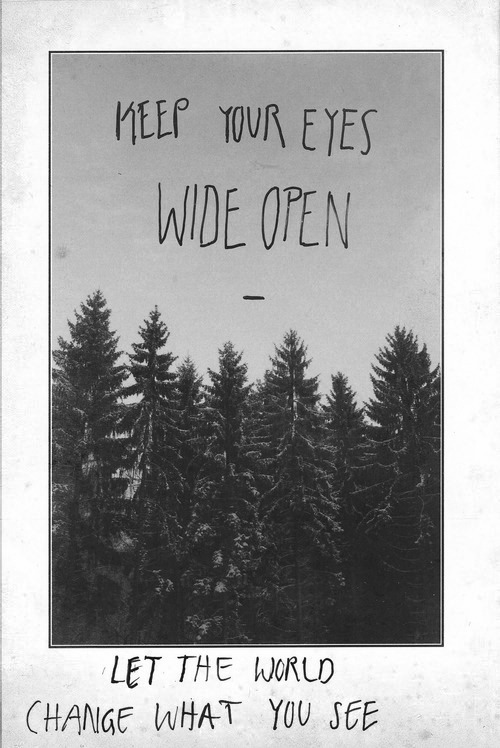 KEEP YOUR EYES
WIDE OPEN
–
LET THE WORLD
CHANGE WHAT YOU SEE